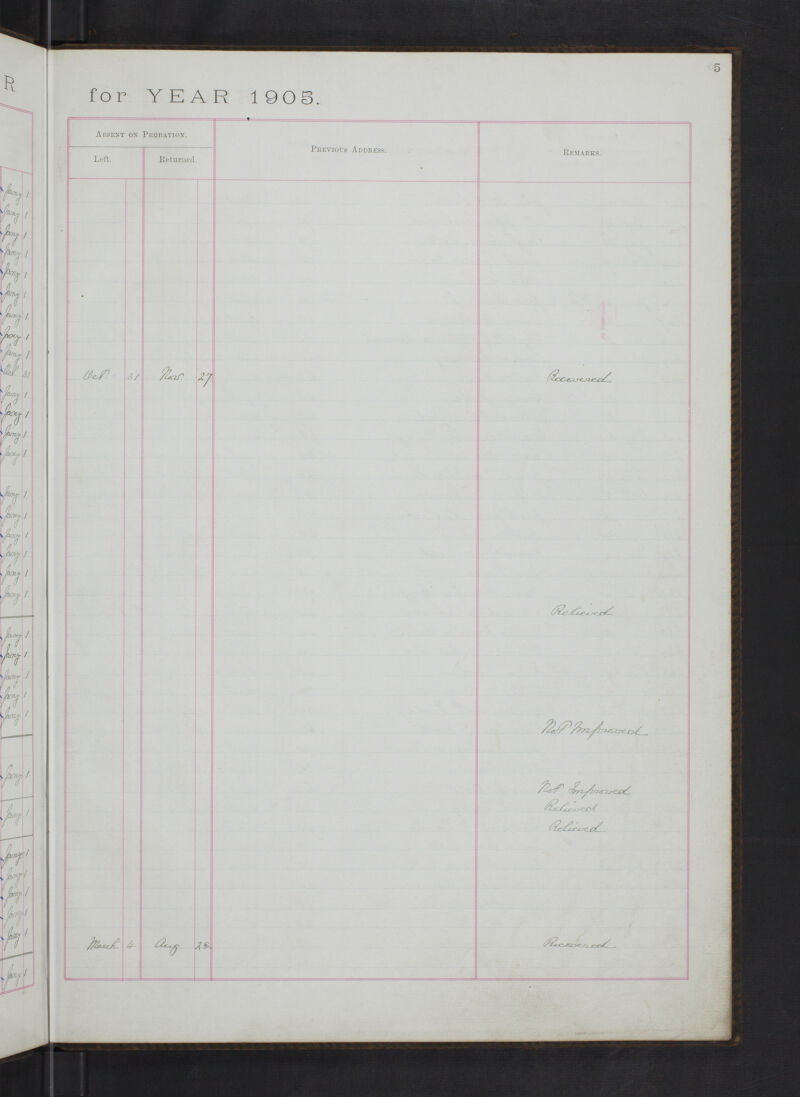 5
R
for YEAR 1905.
ABSENT ON PROBATION.
PREVIOUS ADDRESS.
REMARKS.
Left.
Returned.
Jany 1
Jany 1
Jany 1
Jany 1
Jany 1
Jany 1
Jany 1
Jany 1
Jany 1
Oct 31
Oct 31 Nov. 27 Recovered
Jany 1
Jany 1
Jany 1
Jany 1
Jany 1
Jany 1
Jany 1
Jany 1
Jany 1
Jany 1
Relieved
Jany 1
Jany 1
Jany 1
Jany 1
Jany 1
Not Improved
Jany 1
Not Improved
Relieved
Jany 1
Relieved
Jany 1
Jany 1
Jany 1
Jany 1
Jany 1
March 4 Aug 28 Recovered
Jany 1